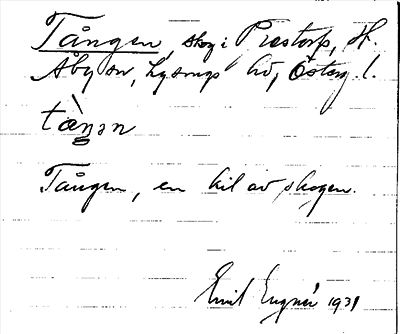 Tången, skog i Prestorp, St.
Åby sn, Lysings hd, Österg. l.
tæ̀ŋən
Tången, en kil av skogen.
Emil Engnér 1931